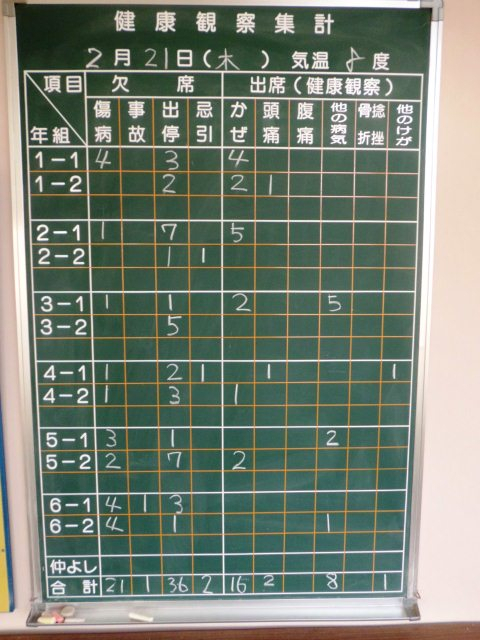 健康観察集計
2月21日(木) 気温 8度
項目 欠席 出席(健康観察)
年組 傷病 事故 出停 忌引 かぜ 頭痛 腹痛 他の病気 骨折 捻挫 他のけが
1-1 4 3 4
1-2 2 2 1
2-1 1 7 5
2-2 1 1
3-1 1 1 2 5
3-2 5
4-1 1 2 1 1 1
4-2 1 3 1
5-1 3 1 2
5-2 2 7 2
6-1 4 1 3
6-2 4 1 1
仲よし
合計 21 1 36 2 16 2 8 1